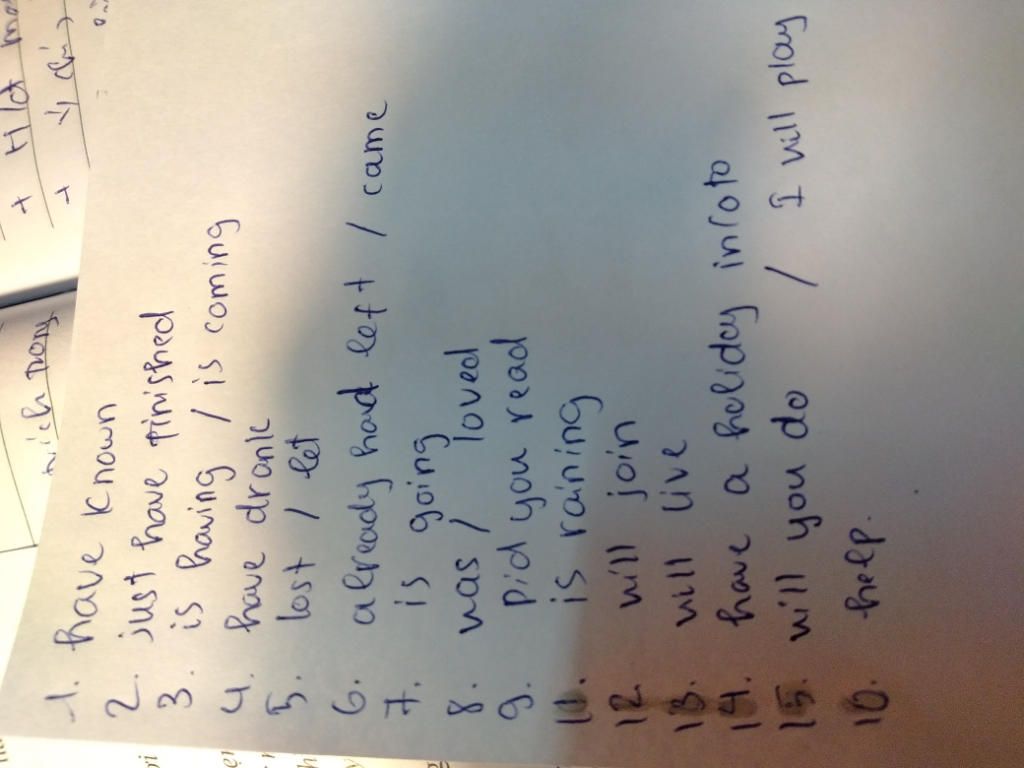 1. have known
2. just have finished
3. is having / is coming
4. have drank
5. lost / let
6. already had left / came
7. is going
8. was / loved
9. Did you read
11. is raining
12 will join
13. will live
14. have a holiday in to
15. will you do / I will play
10. help.
+
+